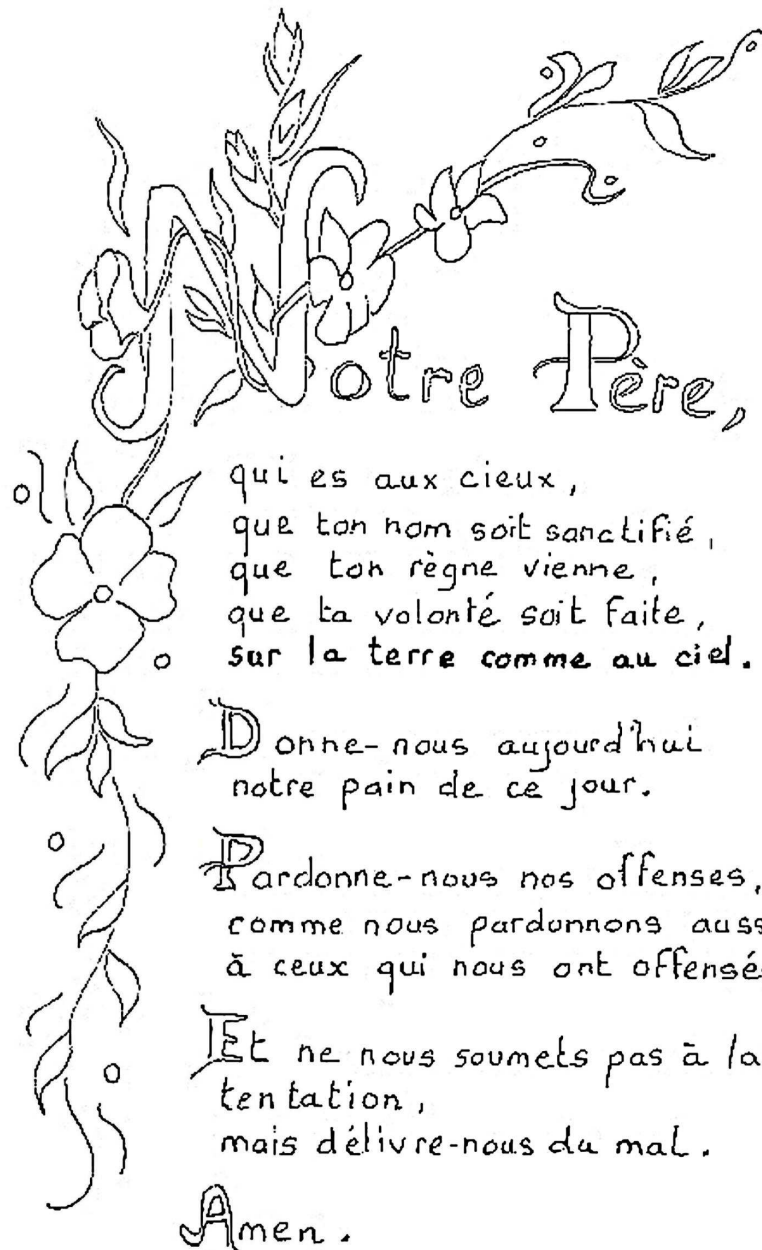 Notre Père,
qui es aux cieux,
que ton nom soit sanctifié,
que ton règne vienne,
que ta volonté soit faite,
sur la terre comme au ciel.
Donne-nous aujourd'hui
notre pain de ce jour.
Pardonne-nous nos offenses,
comme nous pardonnons auss
à ceux qui nous ont offensé
Et ne nous soumets pas à la
tentation,
mais délivre-nous du mal.
Amen.